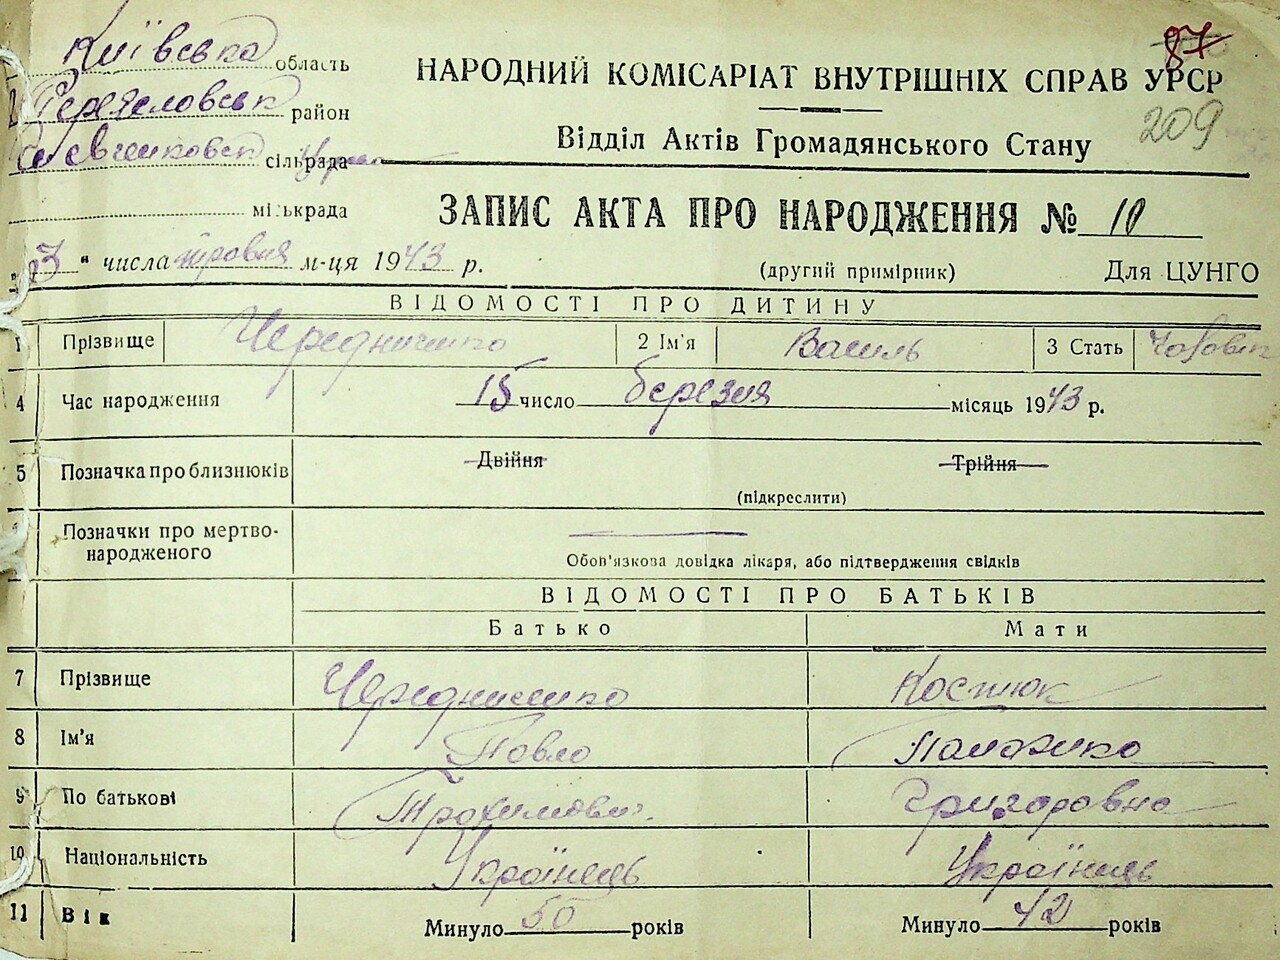 Київська область
87
НАРОДНИЙ КОМІСАРІАТ ВНУТРІШНІХ СПРАВ УРСР
район
209
Відділ Актів Громадянського Стану
сільрада
міськрада
ЗАПИС АКТА ПРО НАРОДЖЕННЯ № 10
„ 3 “ числа травня м-ця 1943 р.
(другий примірник) Для ЦУНГО
ВІДОМОСТІ ПРО ДИТИНУ
1 Прізвище Чередниченко 2 Ім'я Василь 3 Стать Чоловік
4 Час народження 15 число березня місяць 1943 р.
5 Позначка про близнюків Двійня Трійня
(підкреслити)
Позначки про мертво-
народженого
Обов'язкова довідка лікаря, або підтвердження свідків
ВІДОМОСТІ ПРО БАТЬКІВ
Батько Мати
7 Прізвище Чередниченко Костюк
8 Ім'я Павло Палажка
9 По батькові Трохимович Григоровна
10 Національність Українець Українець
11 Вік Минуло 50 років Минуло 42 років